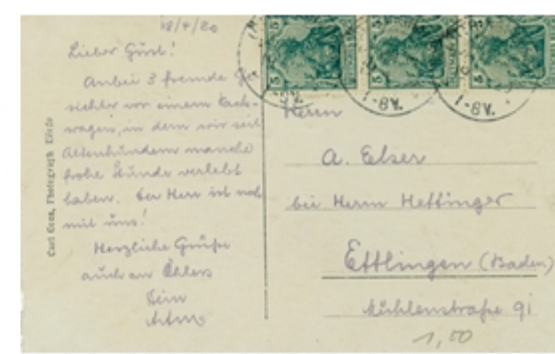 18/4/20
Lieber Gust!
Anbei 3 fremde Ge-
sichter vor einem
wagen, in dem wir seit
Altenhundem manche
frohe Stunde verlebt
haben. Der Herr ist noch
mit uns!
Herzliche Grüße
auch an Öhlers
Dein
Carl Photograph
Herrn
A. Elser
bei Herrn Hettinger
Ettlingen (Baden)
Mühlenstraße 91
1,50
5
5
5
1-8V.
1-8V.
1-8V.